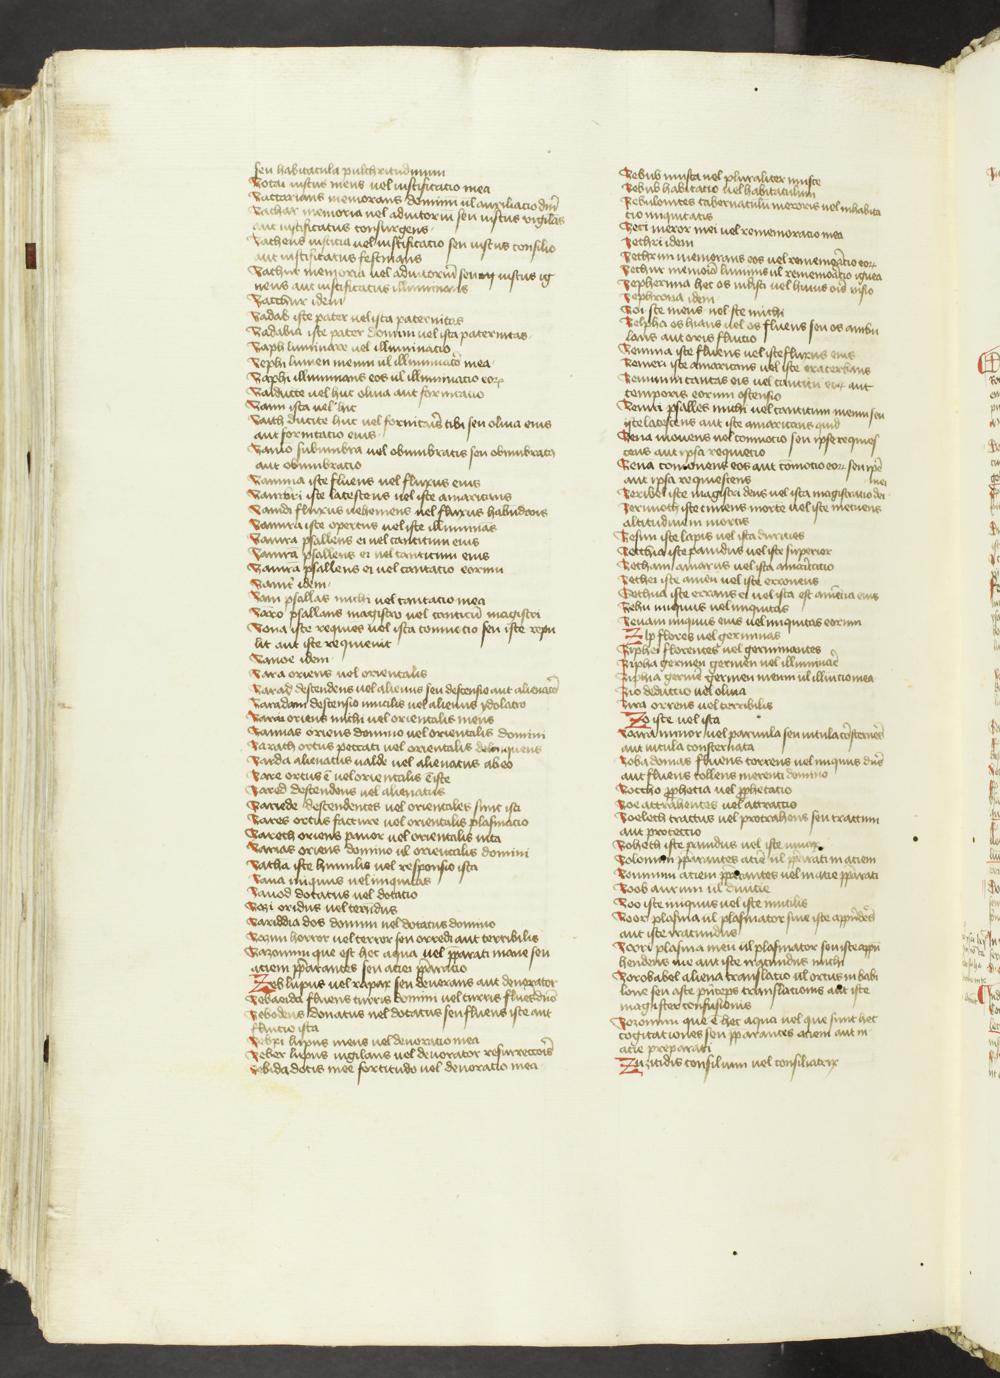 seu habitacula pulchritudinum
Zotai iustus meus uel iustificatio mea
Zaccarias memorans domini ul auxiliatio dni
Zachar memoria uel adiutoriu seu iustus vigilans
aut iustificatus consurgens
Zacheus iusticia uel iustificatio seu iustus consilio
aut iustificatus festinans
Zachur memoria uel adiutoriu iustus ig
neus aut iustificatus illuminans
Zacchur idem
Zadab iste pater uel ista paternitas
Zadabia iste pater domini uel ista paternitas
Zaph luminare uel illuminatio
Zephi lumen meum ul illuminatio mea
Zaphi illuminans eos ul illuminatio eorum
Zaiducte uel huc oliua aut fornicatio
Zaim ista uel huc
Zaith ducite huc uel fornicans tibi seu oliua eius
aut fornicatio eius
Zamo subumbra uel obumbratis seu obumbrato
aut obumbratio
Zamma iste fluens uel fluxus eius
Zambri iste lacescens uel iste amaricans
Zamdi fluxus uehemens uel fluxus habundans
Zamira iste opertus uel iste illuminas
Zamra psallens ei uel canticum eius
Zamra psallens ei uel canticum eius
Zamra psallens ei uel cantatio eorum
idem
Zam psallas michi uel cantatio mea
Zaro psallans magistro uel canticum magistri
Zona iste requies uel ista commotio seu iste repu
lit aut iste requieuit
Zanoe idem
Zara oriens uel orientalis
Zarad descendens uel alienus seu descensio aut alienatio
Zaradam descensio inutilis uel alienus ydolatro
Zarai oriens michi uel orientalis meus
Zaraias oriens domino uel orientalis domini
Zarath ortus peccati uel orientalis delinquens
Zarda alienatus ualde uel alienatus ab eo
Zare ortus e uel orientalis e iste
Zared descendens uel alienatus
Zariede descendentes uel orientales sunt isti
Zares ortus facture uel orientalis plasmatio
Zareth oriens pauor uel orientalis
Zarias oriens domino ul orientalis domini
Zatha iste humilis uel responsio ista
Zaua iniquus uel iniquitas
Zauod dotatus uel dotatio
Zozi oridus uel tenidus
Zariddia dos domini uel dotatus domino
Zozim horror uel terror seu orredi aut terribilis
Zazomim que est hec aqua uel pparati mane seu
aciem pparantes seu acies pparatio
Zeb lupus uel rapax seu deuorans aut deuorator
Zebaoida fluens turris domini uel turris fluet dno
Zebodeus donatus uel dotatus seu fluens iste aut
fluuio ista
Zebri lupus meus uel deuoratio mea
Zeber lupus uigilans uel deuorator resurrectionis
Zebida dotis mee fortitudo uel deuoratio mea
Zebub musca uel pluraliter musce
Zebub habitatio uel habitatulum
Zebulonites tabernaculum meroris uel inhabita
tio iniquitatis
Zeci meror mei uel rememoratio mea
Zechri idem
Zechrim memorans eos uel rememoratio eorum
Zechur memoria luminis ul rememoratio ignea
Zepherima hec os uel huius oris visio
Zephrona idem
Zoi iste meus uel iste michi
Zelpha os hians uel os fluens seu os ambu
lans aut oris fluicio
Zemma iste fluens uel iste fluxus eius
Zemeri iste amaricans uel iste exacerbans
Zemmim canticas eis uel canticu eorum aut
temporis eorum ostensio
Zemri psalles michi uel canticum meum seu
iste lacescens aut iste amaricans quid
Zena mouens uel commotio seu ipse requies
cens aut ipsa requietio
Zena comouens eos aut comotio eorum seu ipse
aut ipsa requiescens
Zeribel iste magistri deus uel ista magistratio dei
Zermoth iste timens morte uel iste metuens
altitudinem mortis
Zesim iste lapis uel ista durities
Zecthia iste pauidus uel iste superior
Zetham amarus uel ista amaricatio
Zethei iste amen uel iste erroneus
Zethua iste errans ei uel ista est amentia eius
Zebu iniquus uel iniquitas
Zeuam iniquus eius uel iniquitas eorum
Zip flores uel germinas
Ziphei florentes uel germinantes
Zipha germen germen uel illuminatio
Ziphia germen germen meum ul illuminatio mea
Zio deductio uel oliua
Zira orrens uel terribilis
Zo iste uel ista
Zoara minor uel paruula seu uitula consternens
aut uitula consternata
Zoba domas fluens torrens uel iniquus dus
aut fluens tollens merenti domino
Zoccho pphetia uel pphetatio
Zoe attrahentes uel attractio
Zoeleth tractus uel protrahens seu tractum
aut protectio
Zoheth iste pauidus uel iste
Zolomim pparantes acie ul pparati in aciem
Zomimi aciem pparantes uel in acie pparati
Zoob aurum ul diuitie
Zoo iste iniquus uel iste inutilis
Zoor plasma ul plasmator siue iste appndens
aut iste iracundus
Zoori plasma meu ul plasmator seu iste appn
hendens me aut iste iracundus michi
Zorobabel aliena translatio ul ortus in babi
lone seu aste pnceps translationis aut iste
magister confusionis
Zozomim que e hec aqua uel que sunt hec
cogitationes seu pparantes aciem aut in
acie preparati
Zuzitidis consilium uel consiliatrix